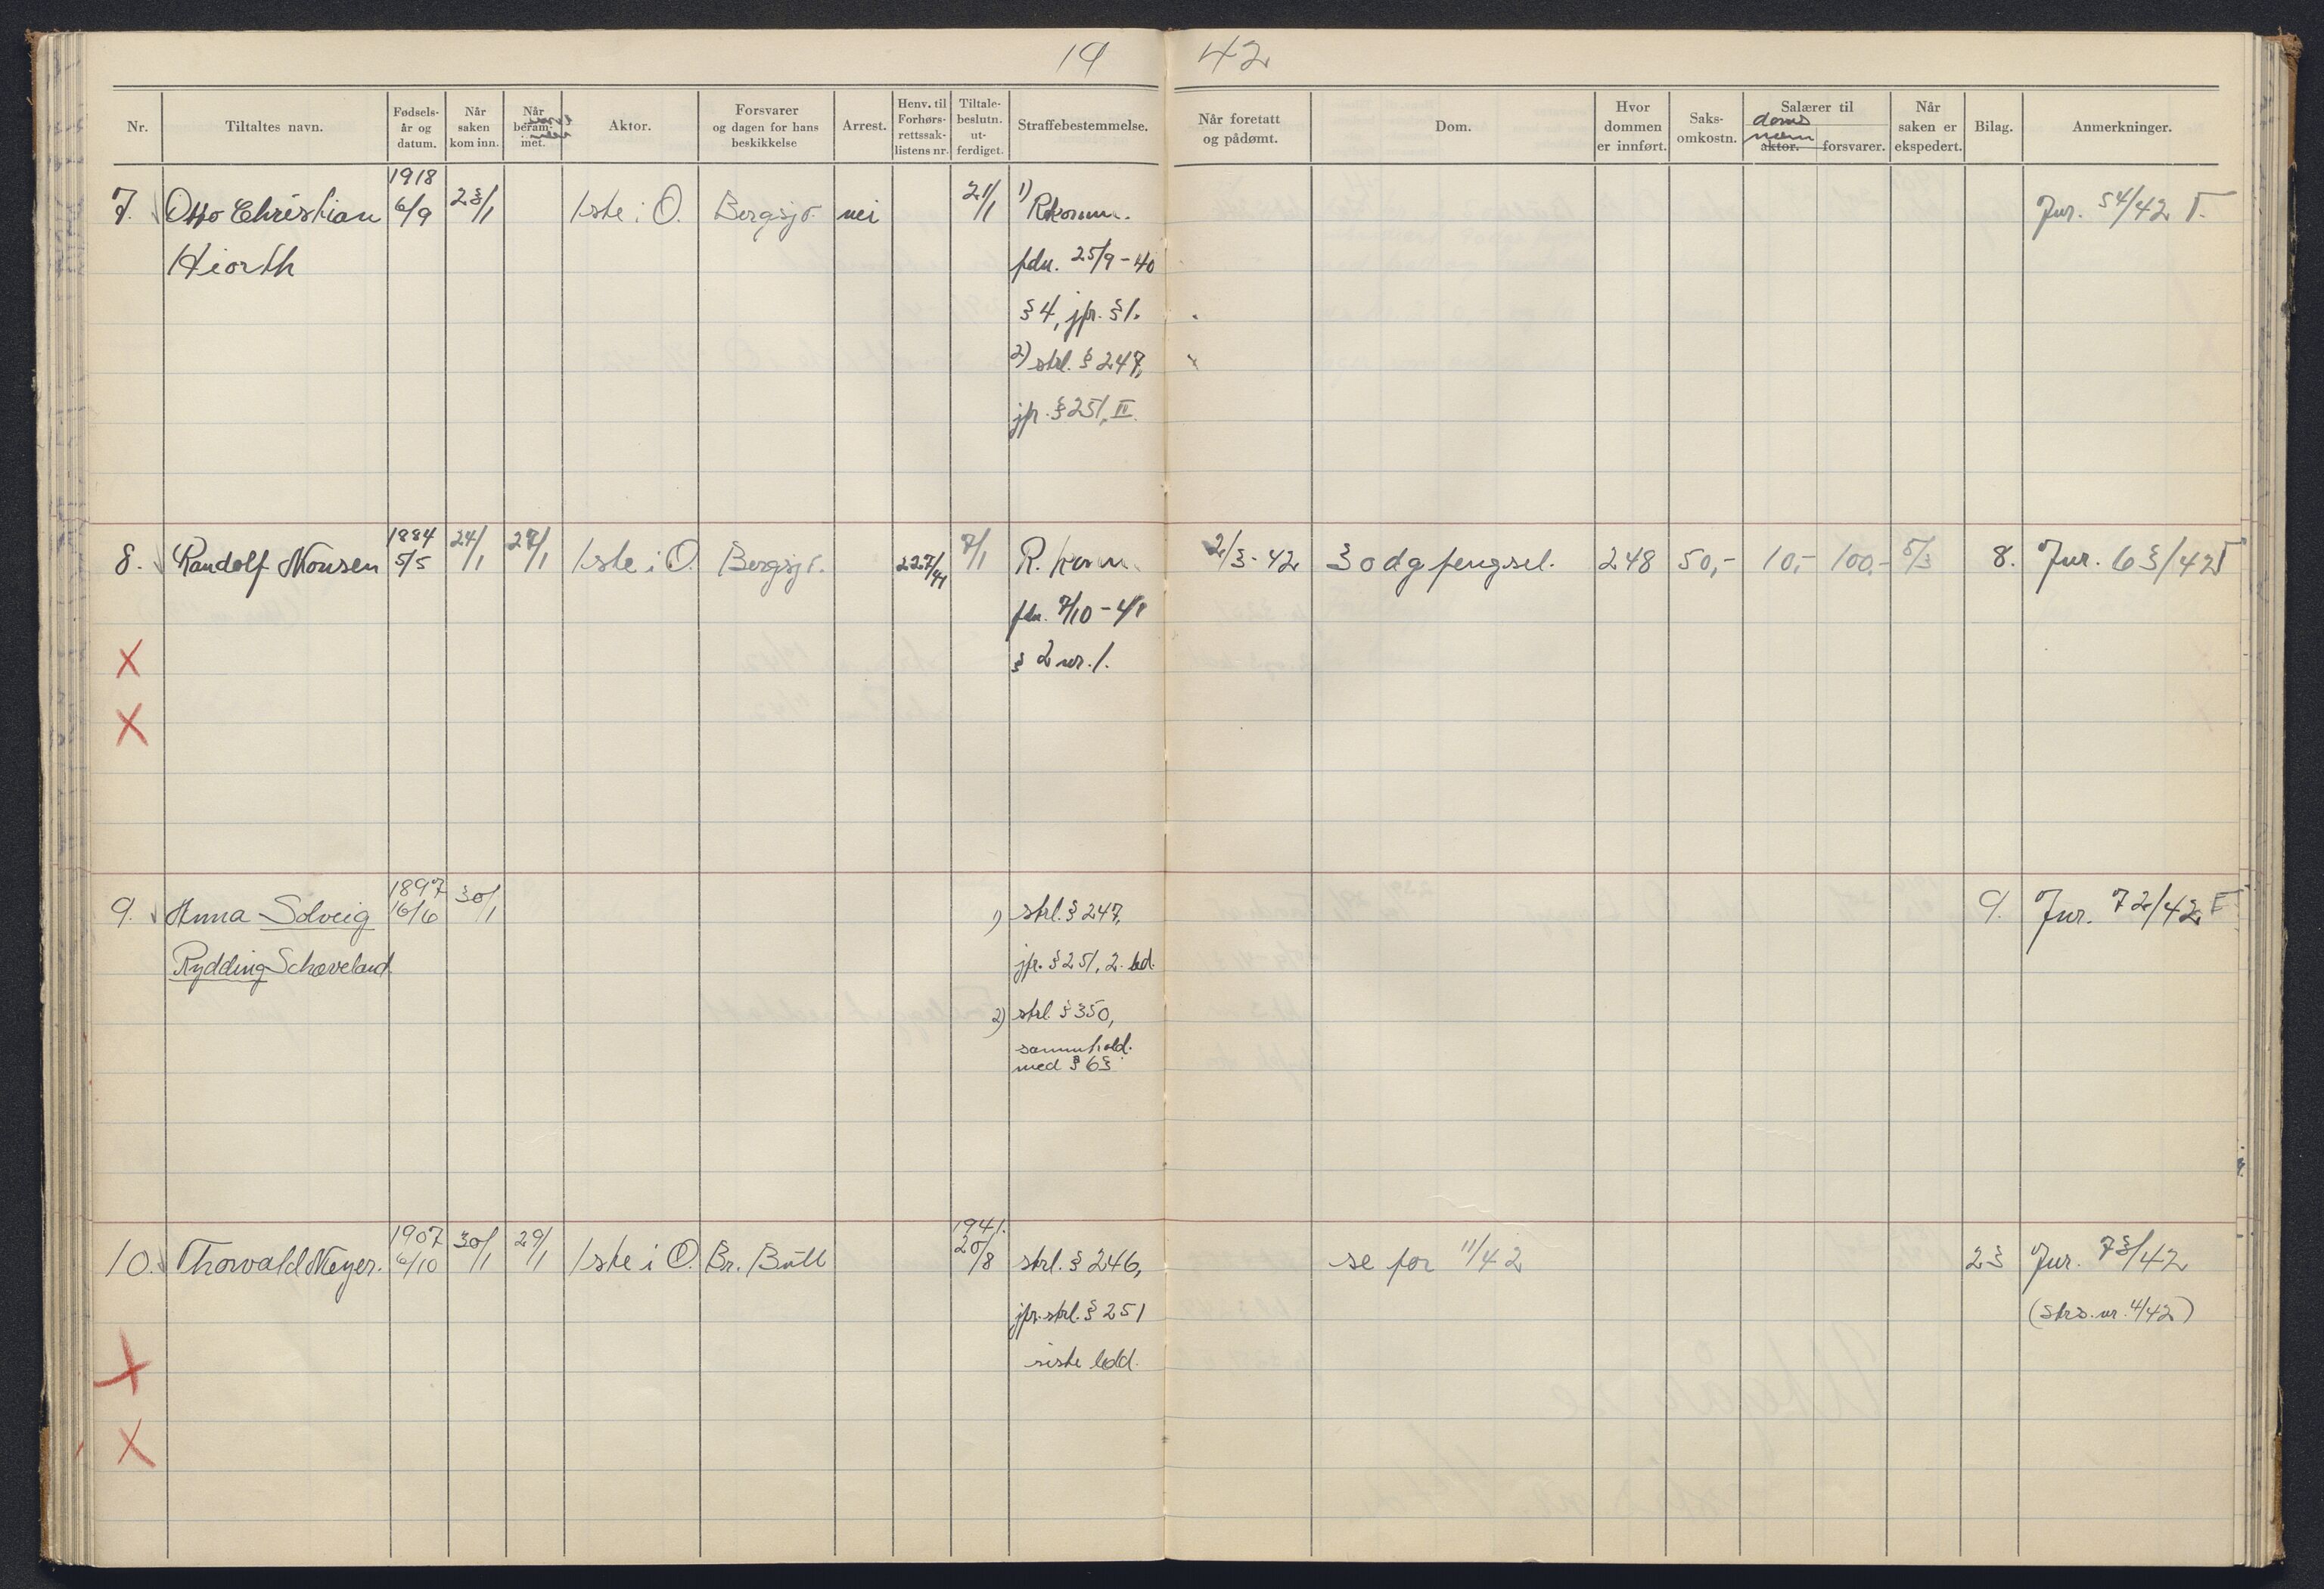 19 42
Nr. Tiltaltes navn. Fødsels- år og datum. Når saken kom inn. Når beram- met. Aktor. Forsvarer og dagen for hans beskikkelse Arrest. Henv. til Forhørs- rettssak- listens nr. Tiltale- beslutn. ut- ferdiget. Straffebestemmelse. Når foretatt og pådømt. Dom. Hvor dommen er innført. Saks- omkostn. Salærer til doms aktor. forsvarer. Når saken er ekspedert. Bilag. Anmerkninger.
1918
7. Otto Christian 6/9 23/1 1ste i O. Bergsjø. nei 21/1 1) Rkomm. Jur. 54/42 I.
Hiorth fdn. 25/9-40
§ 4, jfr. § 1.
2) strl. § 247,
jfr. § 251, II.
1884
8. Randolf Monsen 5/5 24/1 27/1 1ste i O. Bergsjø. 227/41 7/1 R. komm. 2/3-42 30 dg fengsel. 248 50,- 10,- 100,- 5/3 8. Jur. 63/42 I
fdn. 7/10-41
§ 2 nr. 1.
X
X
1897
9. Anna Solveig 16/6 30/1 1) strl. § 247, 9. Jur. 72/42 I
Rydding Schæveland. jfr. § 251, 2. led.
2) strl. § 350,
sammhold.
med § 63
1907 1941.
10. Thorvald Meyer. 6/10 30/1 29/1 1ste i O. Br. Bull 20/8 strl. § 246, se for 11/42 23 Jur. 73/42
jfr. strl. § 251 (strs. nr. 4/42)
siste ledd.
X
X